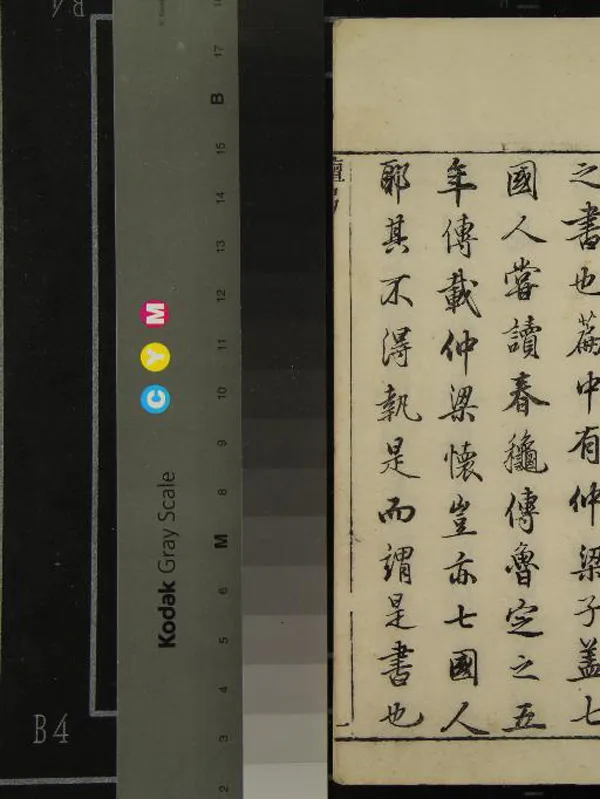 之書也篇中有仲梁子蓋七
國人嘗讀春龝傳魯定之五
年傳載仲梁懷豈亦七國人
耶其不得執是而謂是書也
檀弓
Kodak Gray Scale
C Y M
17
B
15
14
13
12
11
10
9
8
M
6
5
4
3
2
B4
B4